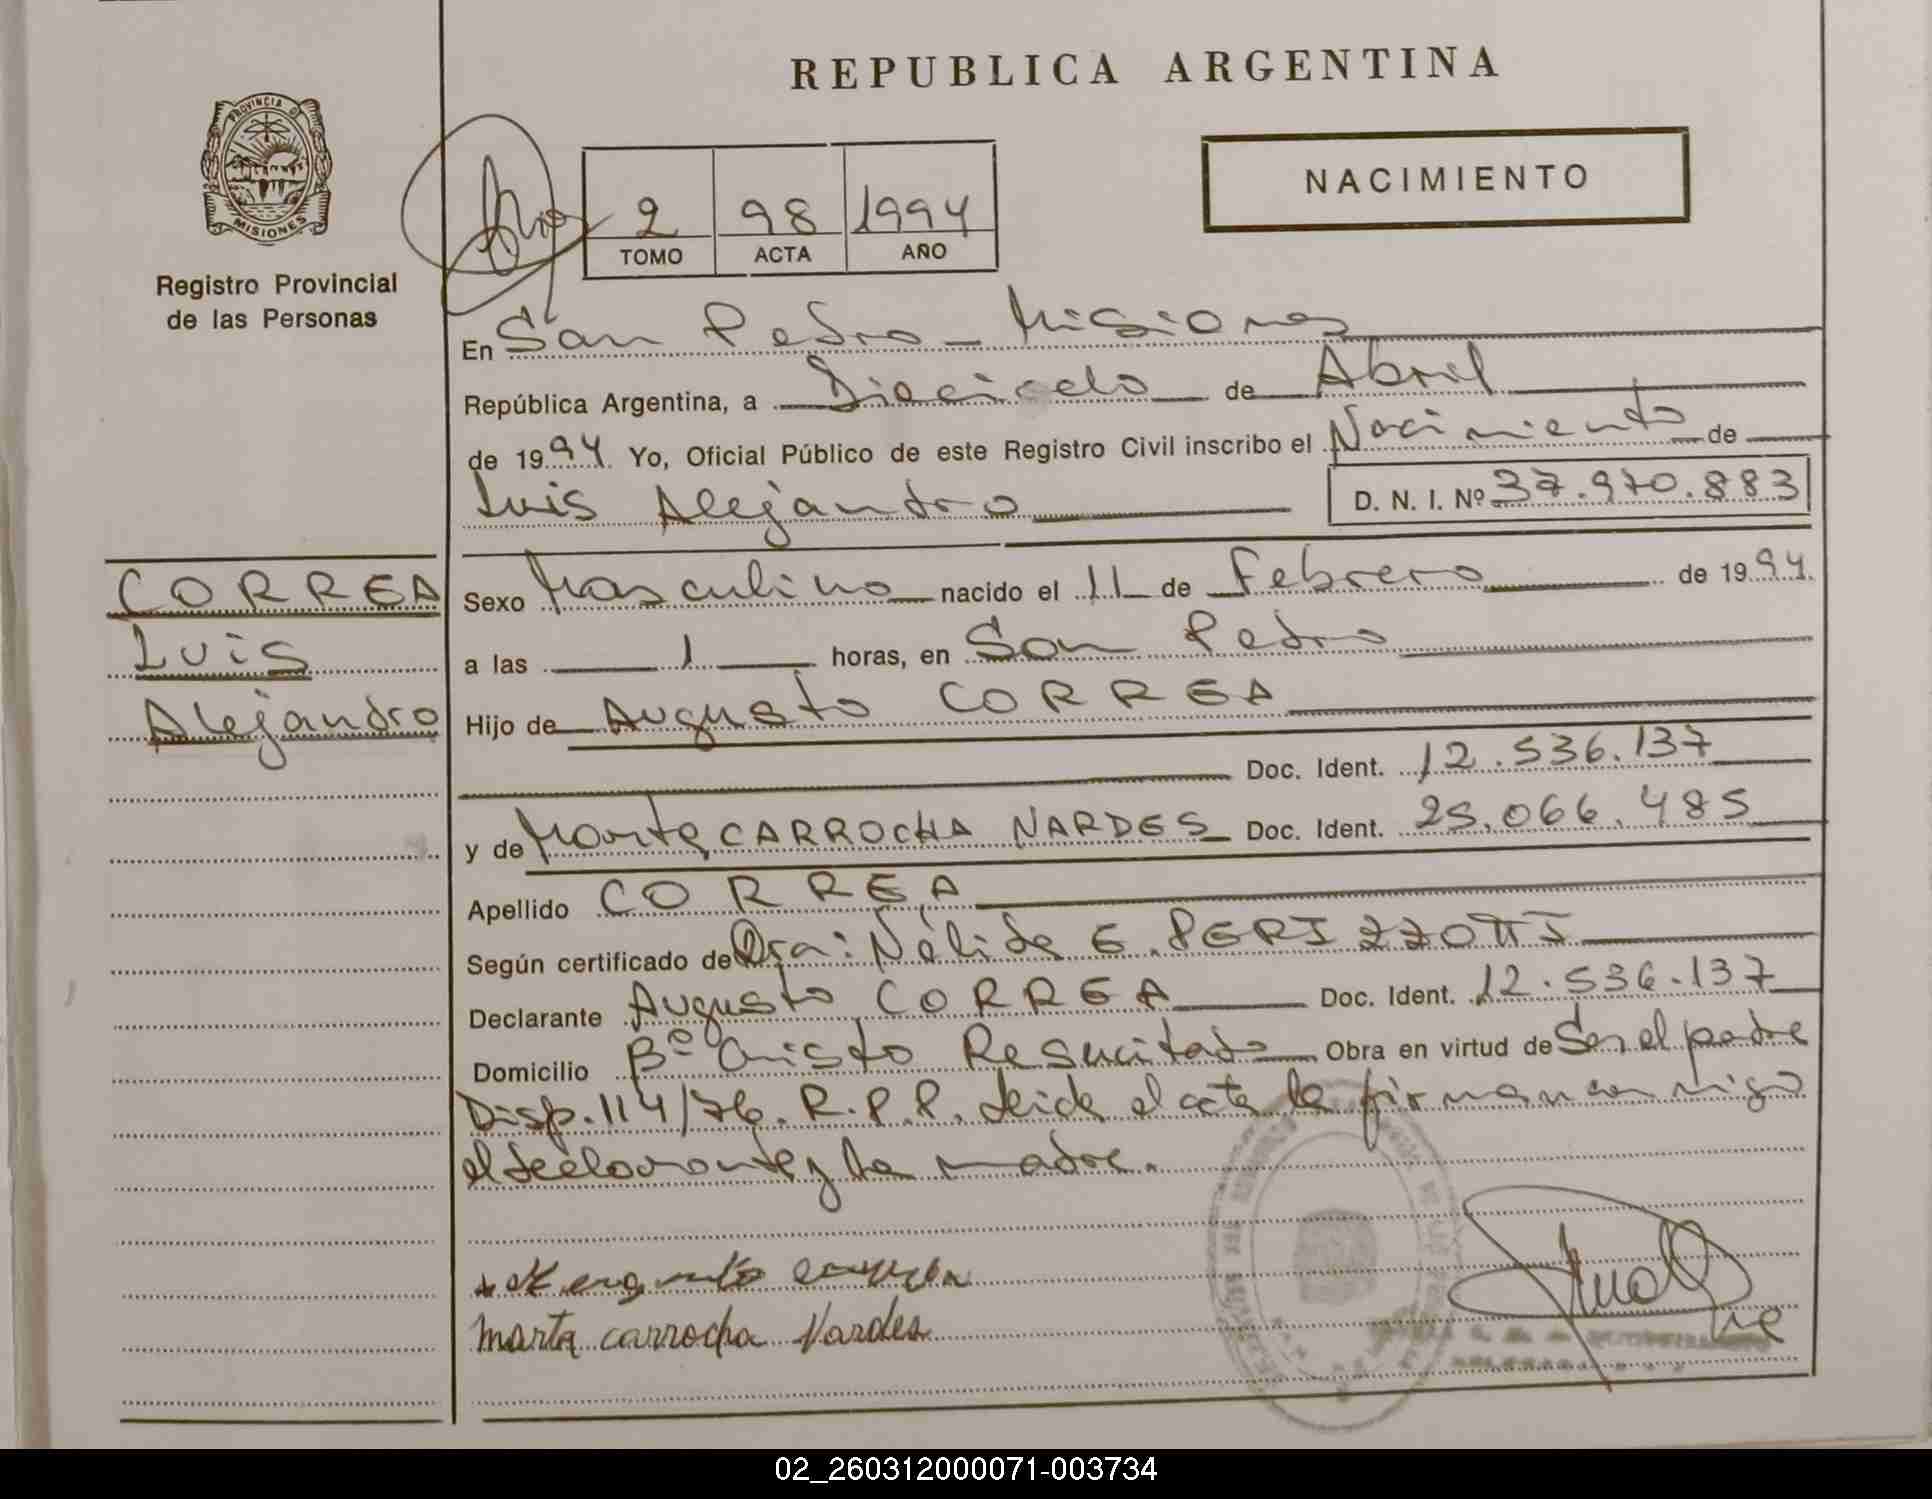 REPUBLICA ARGENTINA
PROVINCIA DE
MISIONES
Registro Provincial
de las Personas
NACIMIENTO
2 98 1994
TOMO ACTA AÑO
En San Pedro - Misiones
República Argentina, a Dieciocho de Abril
de 1994. Yo, Oficial Público de este Registro Civil inscribo el Nacimiento de
Luis Alejandro D. N. I. Nº 37.970.883
CORREA
Luis
Alejandro
Sexo Masculino nacido el 11 de Febrero de 1994.
a las 1 horas, en San Pedro
Hijo de Augusto CORREA
Doc. Ident. 12.536.137
y de Marta CARROCHA NARDES Doc. Ident. 25.066.485
Apellido CORREA
Según certificado de Dra: Nélida E. PERIZZOTTI
Declarante Augusto CORREA Doc. Ident. 12.536.137
Domicilio Bº Cristo Resucitado Obra en virtud de Ser el padre
Disp. 114/76. R.P.P. Leida el acta la firman conmigo
el declarante y la madre.
marta carrocha Nardes
02_260312000071-003734